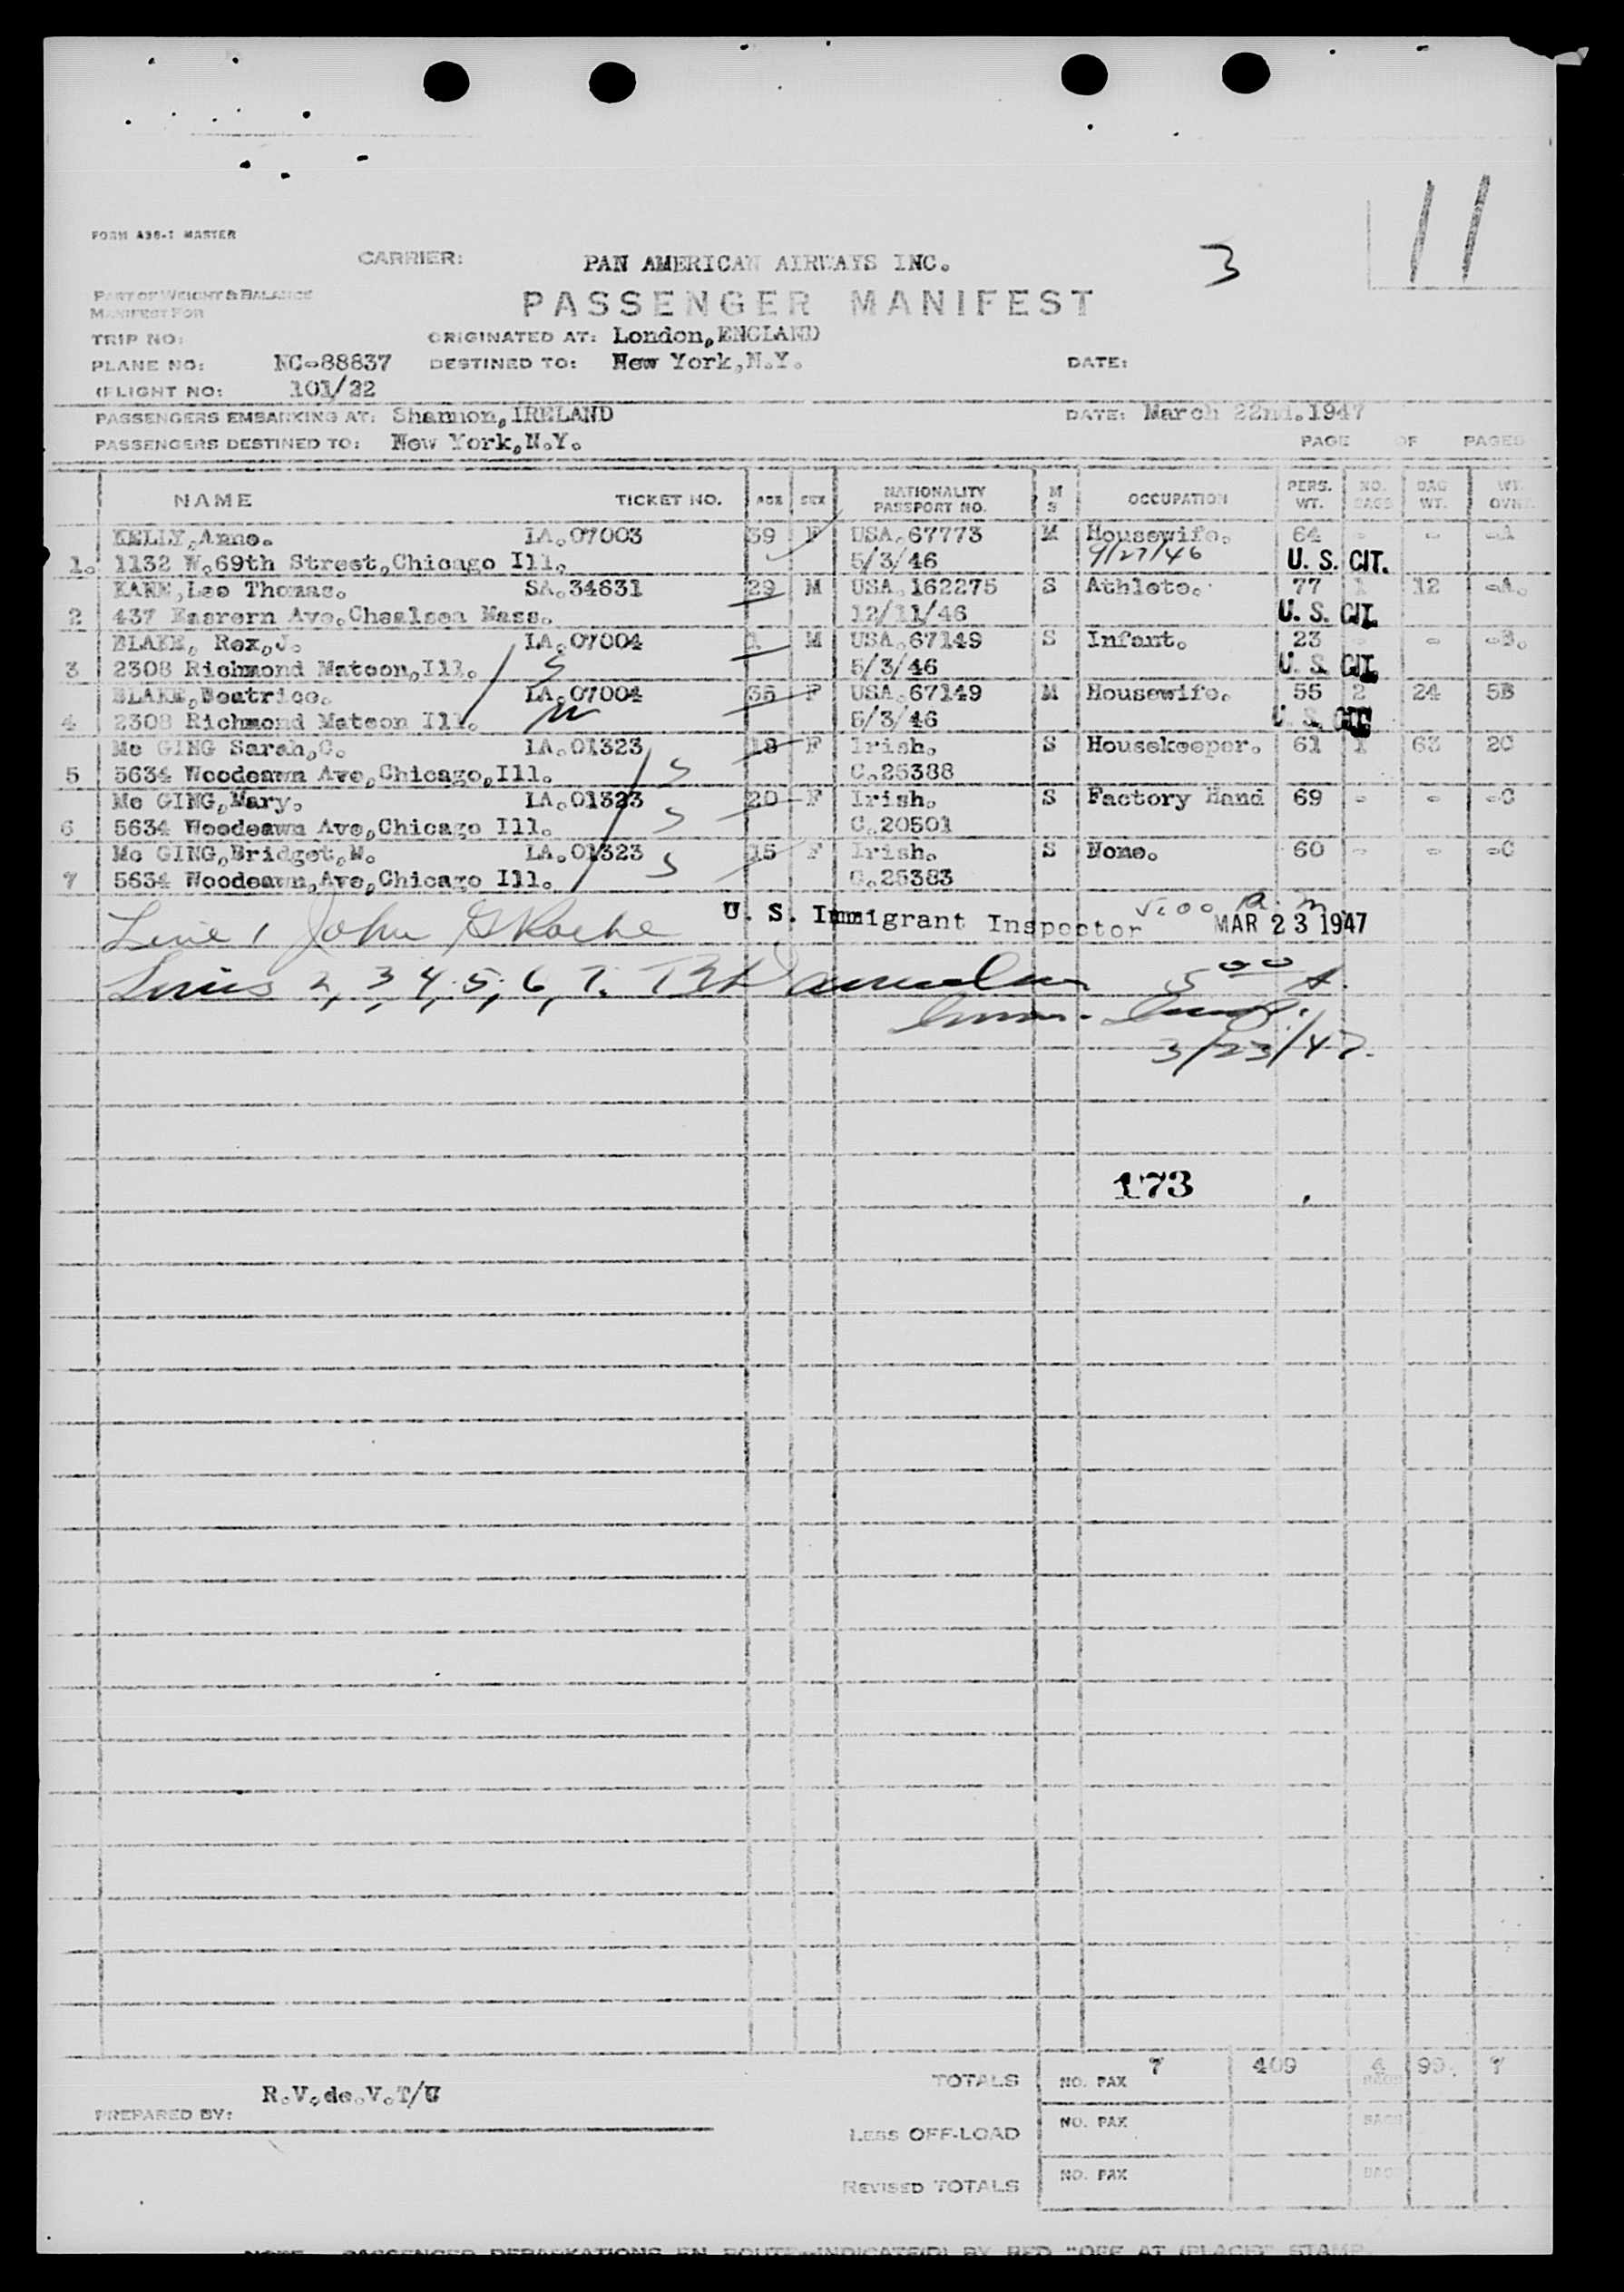 FORM A36-1 MASTER
CARRIER: PAN AMERICAN AIRWAYS INC.
3
11
PART OF WEIGHT & BALANCE
MANIFEST FOR
PASSENGER MANIFEST
TRIP NO:
ORIGINATED AT: London,ENGLAND
PLANE NO: NC-88837 DESTINED TO: New York,N.Y. DATE:
(FLIGHT NO: 101/22
PASSENGERS EMBARKING AT: Shannon,IRELAND DATE: March 22nd.1947
PASSENGERS DESTINED TO: New York,N.Y. PAGE OF PAGES
NAME TICKET NO. AGE SEX NATIONALITY PASSPORT NO. M S OCCUPATION PERS. WT. NO. BAGS BAG WT. WT. OVN.
KELLY,Anne. LA.07003 39 F USA.67773 M Housewife. 64 - - -A
1. 1132 W.69th Street,Chicago Ill. 5/3/46 9/27/46 U. S. CIT.
KANE,Leo Thomas. SA.34631 29 M USA.162275 S Athlete. 77 1 12 -A.
2 437 Easrern Ave.Chealsea Mass. 12/11/46 U. S. CIT.
BLAKE, Rex,J. LA.07004 1 M USA.67149 S Infant. 23 - - -B.
3 2308 Richmond Matoon,Ill. S 5/3/46 U. S. CIT.
BLAKE,Beatrice. LA.07004 36 F USA.67149 M Housewife. 55 2 24 5B
4 2308 Richmond Matoon Ill. M 5/3/46 U. S. CIT.
Mc GING Sarah,C. LA.01323 18 F Irish. S Housekeeper. 61 1 63 2C
5 5634 Woodeawn Ave,Chicago,Ill. S C.25388
Mc GING,Mary. LA.01323 20 F Irish. S Factory Hand 69 - - -C
6 5634 Woodeawn Ave,Chicago Ill. S C.20501
Mc GING,Bridget,M. LA.01323 15 F Irish. S None. 60 - - -C
7 5634 Woodeawn,Ave,Chicago Ill. S C.25383
Line 1 John Roche U. S. Immigrant Inspector 5:00 a.m MAR 23 1947
Lines 2, 3, 4, 5, 6, 7. 5 00 A.
Imm. Insp.
3/23/47.
173
TOTALS NO. PAX 7 409 4 BAGS 99. 7
R.V.de.V.T/U
PREPARED BY:
LESS OFF-LOAD NO. PAX BAGS
REVISED TOTALS NO. PAX BAGS
NOTE PASSENGER DEBARKATIONS EN ROUTE INDICATE(D) BY RED "OFF AT (PLACE)" STAMP.